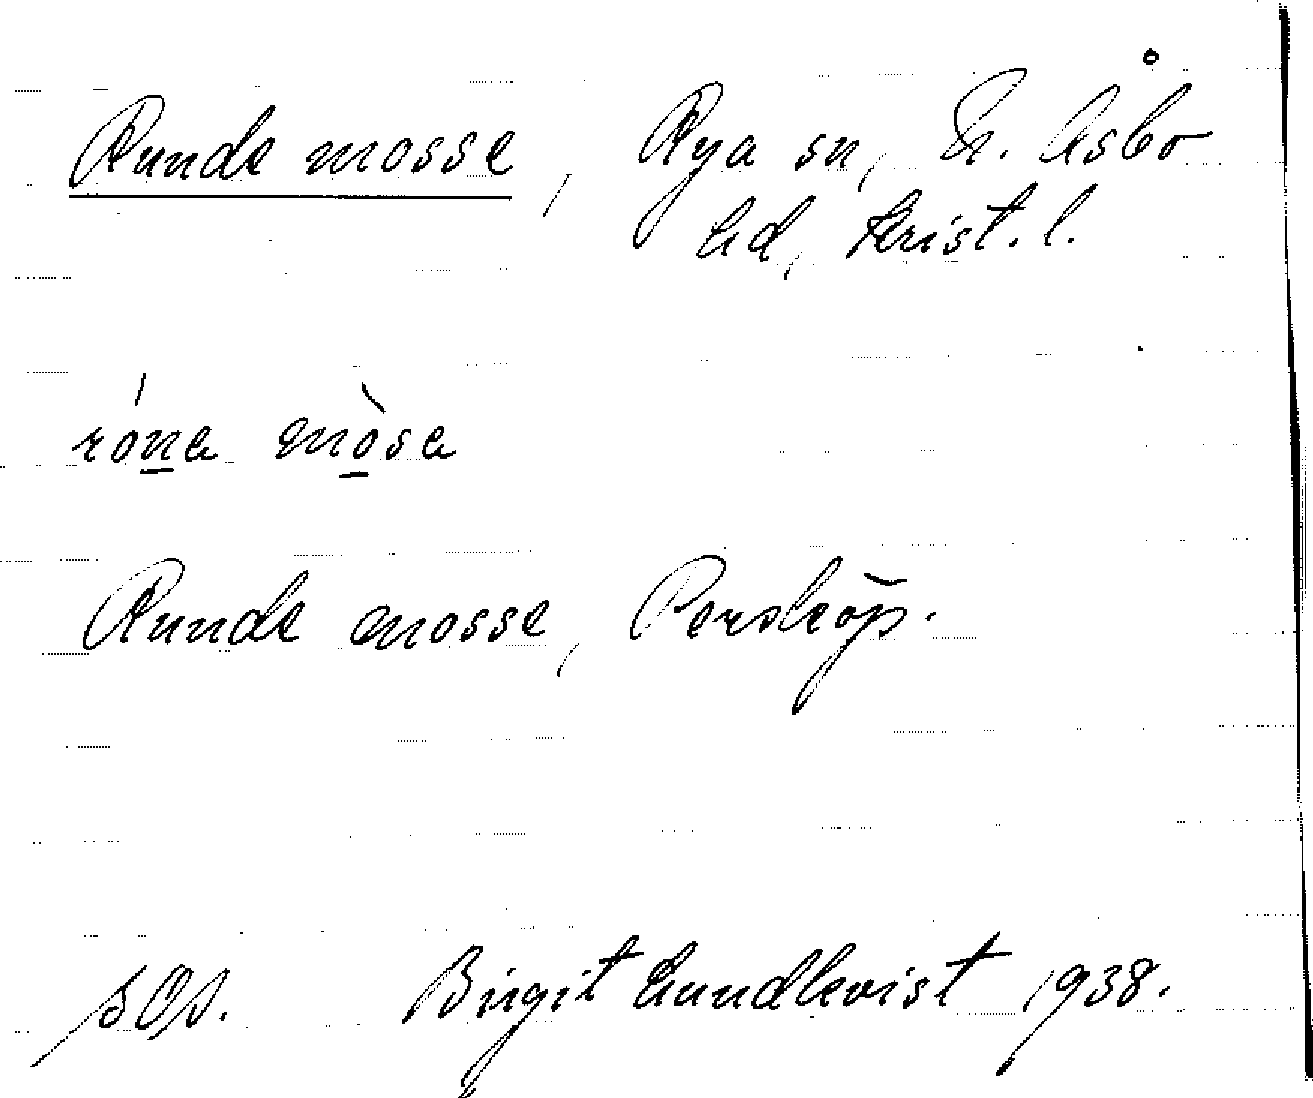 Runde mosse, Rya sn, N. Åsbo
hd, Krist. l.
róna mòsa
Runde mosse, Persköp.
Birgit Lundkvist 1938.